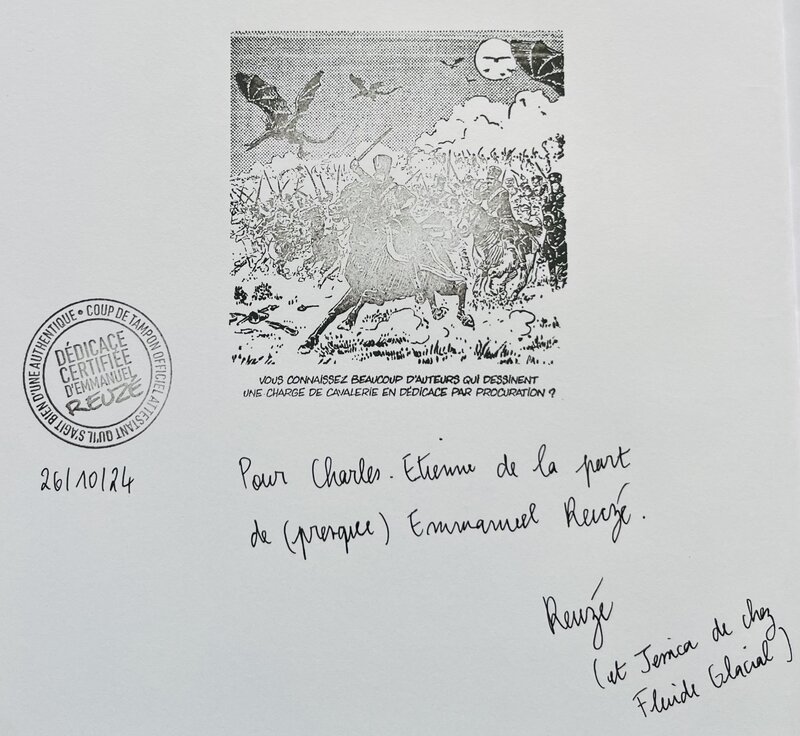 VOUS CONNAISSEZ BEAUCOUP D'AUTEURS QUI DESSINENT
UNE CHARGE DE CAVALERIE EN DÉDICACE PAR PROCURATION ?
COUP DE TAMPON OFFICIEL ATTESTANT QU'IL S'AGIT BIEN D'UNE AUTHENTIQUE •
DÉDICACE
CERTIFIÉE
D'EMMANUEL
REUZÉ
26/10/24
Pour Charles-Etienne de la part
de (presque) Emmanuel Reuzé.
Reuzé
(et Jessica de chez
Fluide Glacial)